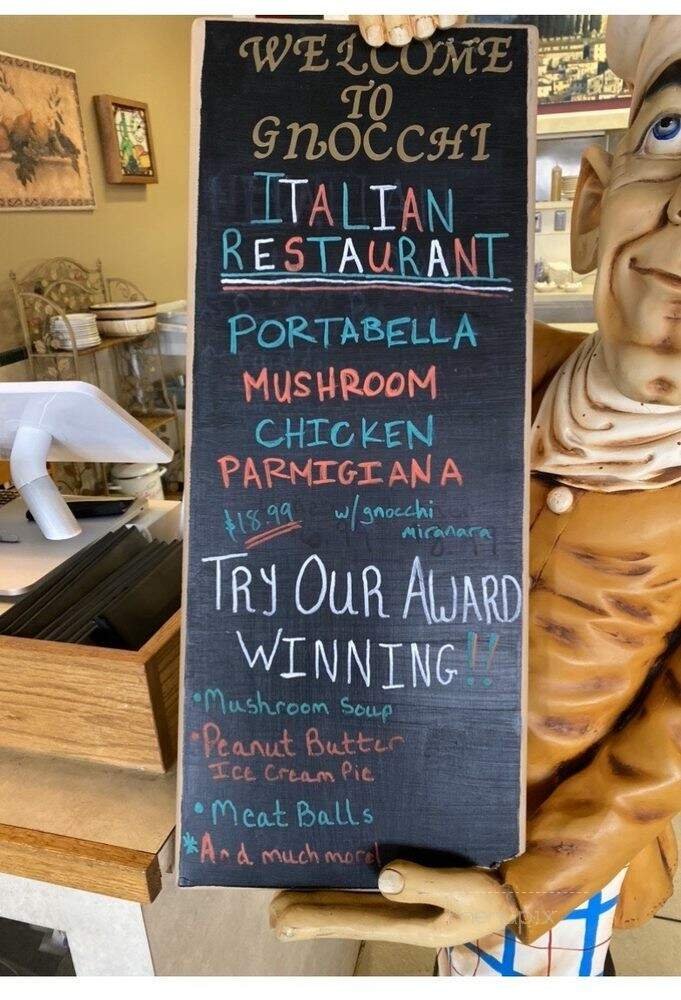 WELCOME
TO
GNOCCHI
ITALIAN
RESTAURANT
PORTABELLA
MUSHROOM
CHICKEN
PARMIGIANA
$18.99 w/gnocchi
miranara
TRY OUR AWARD
WINNING!!
•Mushroom Soup
•Peanut Butter
Ice Cream Pie
•Meat Balls
*And much more!
menupix